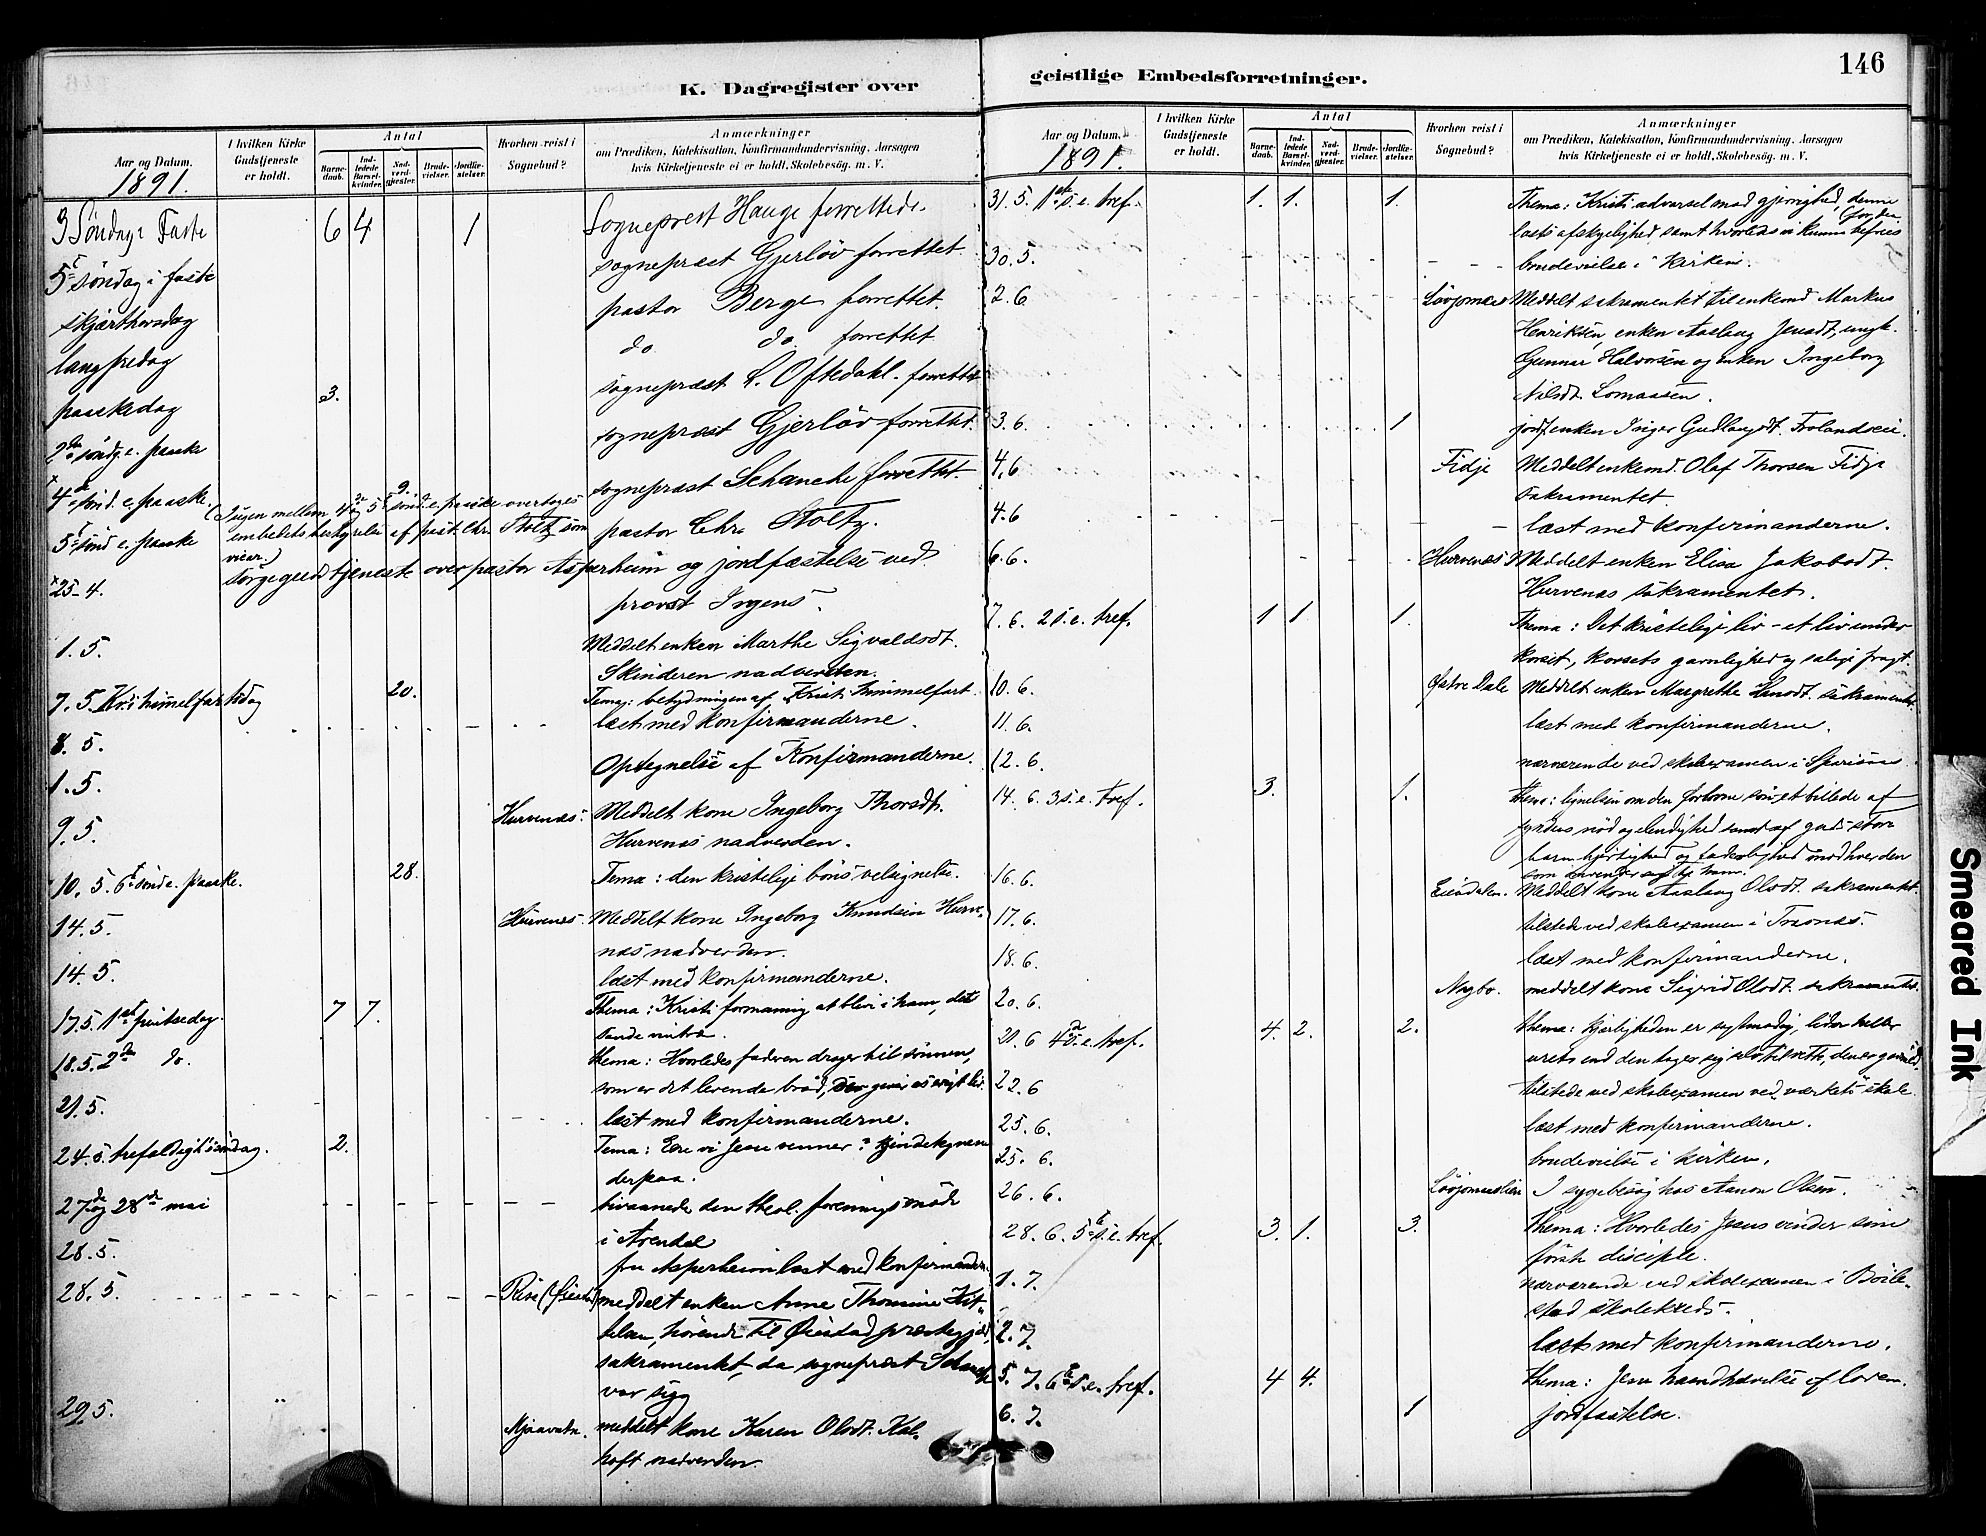 K. Dagregister over
Aar og Datum.
1891.
I hvilken Kirke Gudstjeneste er holdt.
Antal
Barnedaab.
Indledede Barselkvinder.
Nadverdgjester.
Brudevielser.
Jordfæstelser.
Hvorhen reist i Sognebud?
Anmærkninger
om Prædiken, Katekisation, Konfirmandundervisning, Aarsagen
hvis Kirketjeneste ei er holdt, Skolebesøg. m. V.
3 Søndag i Faste 6 4 1 Sogneprest Hauge forrettede.
5t søndag i faste sognepræst Gjerløv forrettet.
skjærthorsdag pastor Berge forrettet.
langfredag do do forrettet
paaskedag 3. sognepræst L. Oftedahl. forrettet
2den søndg. e. paaske sognepræst Gjerløv forrettet.
4de sønd. e. paaske. 9. sognepræst Schanche forrettet.
(Iugen mellem 4de og 5t sønd. e. paaske overtoges
embedets bestyrelse af past. Chr. Stoltz som
vicar.)
5t sønd e. paaske pastor Chr. Stoltz.
25-4. sørgegudstjeneste over pastor Asperheim og jordfæstelse ved
provst Irgens.
1. 5. Meddelt enken Marthe Sigvaldsdt.
Skinderen nadverden.
7. 5. Kristi himmelfartsdag 20. Tema: betydningen af Kristi himmelfart
8. 5. læst med konfirmanderne.
1. 5. Optegnelse af Konfirmanderne.
9. 5 Hurvenæs. Meddelt kone Ingeborg Thorsdt.
Hurvenæs nadverden.
10. 5. 6t sønd e. paaske. 28. Tema: den kristelige bøns velsignelse.
14. 5. Hurvenæs. Meddelt kone Ingeborg Knudsen Hurve-
næs nadverden.
14. 5. læst med konfirmanderne.
17. 5. 1ste pintsedag. 7 7. Thema: Kristi formaning at blive i ham, det
sande vintræ.
18. 5. 2den do. thema: Hvorledes faderen drager til sønnen,
som er det levende brød, der giver os evigt liv.
21. 5. læst med konfirmanderne.
24. 5. trefoldigh. søndag. 2. Tema: Ere vi Jesu venner? kjendetegnene
derpaa.
27de og 28de mai bivaanede den theol. forenings møde
i Arendal
28. 5. fru Asperheim læst med konfirmander.
28. 5. Rise (Øiestad) meddelt enken Anne Thomine Kit-
telsen, hørende til Øiestad præstegjæld,
sakramentet, da sognepræst Schanche
var syg
29. 5. Mjaavatn. meddelt kone Karen Olsdt. Kal-
hoft nadverden.
geistlige Embedsforretninger.
146
Aar og Datum.
1891.
I hvilken Kirke Gudstjeneste er holdt.
Antal
Barnedaab.
Indledede Barselkvinder.
Nadverdgjester.
Brudevielser.
Jordfæstelser.
Hvorhen reist i Sognebud?
Anmærkninger
om Prædiken, Katekisation, Konfirmandundervisning, Aarsagen
hvis Kirketjeneste ei er holdt, Skolebesøg. m. V.
31. 5. 1ste s. e. tref. 1. 1. 1. Thema: Kristi advarsel mod gjerrighed, denne
lasts afskyelighed samt hvorledes vi kunne befries
30. 5. brudevielse i kirken.
2. 6 Meddelt sakramentet til enkemd Markus
Henriksen enken Aaslaug Jensdt, ungk.
Gunnar Halvorsen og enken Ingeborg
Nilsdt. Lomaasen.
3. 6. 1 jordf. enken Inger Gudlaugsdt. Frolandseie.
4. 6 Fidje Meddelt enkemd. Olaf Thorsen Fidje
sakramentet.
4. 6 læst med konfirmanderne.
6. 6. Hurvenæs Meddelt enken Elisa Jakobsdt.
Hurvenæs sakramentet.
7. 6. 2 s. e. tref. 1 1 1. Thema: Det kristelige liv - et liv under
korset, korsets gavnlighed og salige frugt.
10. 6. Østre Dale Meddelt enken Margrethe Hansdt. sakramentet.
11. 6. læst med konfirmanderne.
12. 6. nærværende ved skoleexamen i
14. 6. 3 s. e. tref. 3. 1. thema: lignelsen om den forlorne søn et billede af
synderes nød og elendighed samt af guds store
barmhjertighed og faderlighed mod hver den
som omvender sig til ham.
16. 6. Eivdalen. Meddelt kone Aaslaug Olsdt. sakramentet.
17. 6. tilstede ved skoleexamen i Trevnæs.
18. 6. læst med konfirmanderne.
20. 6. Neybo. meddelt kone Sigrid Olsdt. sakramentet.
21. 6 4de s. e. tref. 4. 2. 2. thema: kjærligheden er sagtmodig, lider heller
uret end den tager sig selv til rette,
22. 6 tilstede ved skoleexamen ved værkets skole
25. 6. læst med konfirmanderne.
25. 6. brudevielse i kirken.
26. 6. I sygebesøg hos Aanon Olsen.
28. 6. 5te s. e. tref. 3. 1. 3. thema: Hvorledes Jesus vinder sine
første disciple.
1. 7. nærværende ved skoleexamen i Bøile-
stad skolekreds.
2. 7. læst med konfirmanderne.
5. 7. 6te s. e. tref. 4 4. thema: Jesu haandhævelse af loven.
6. 7. 1 jordfæstelse.
Smeared Ink